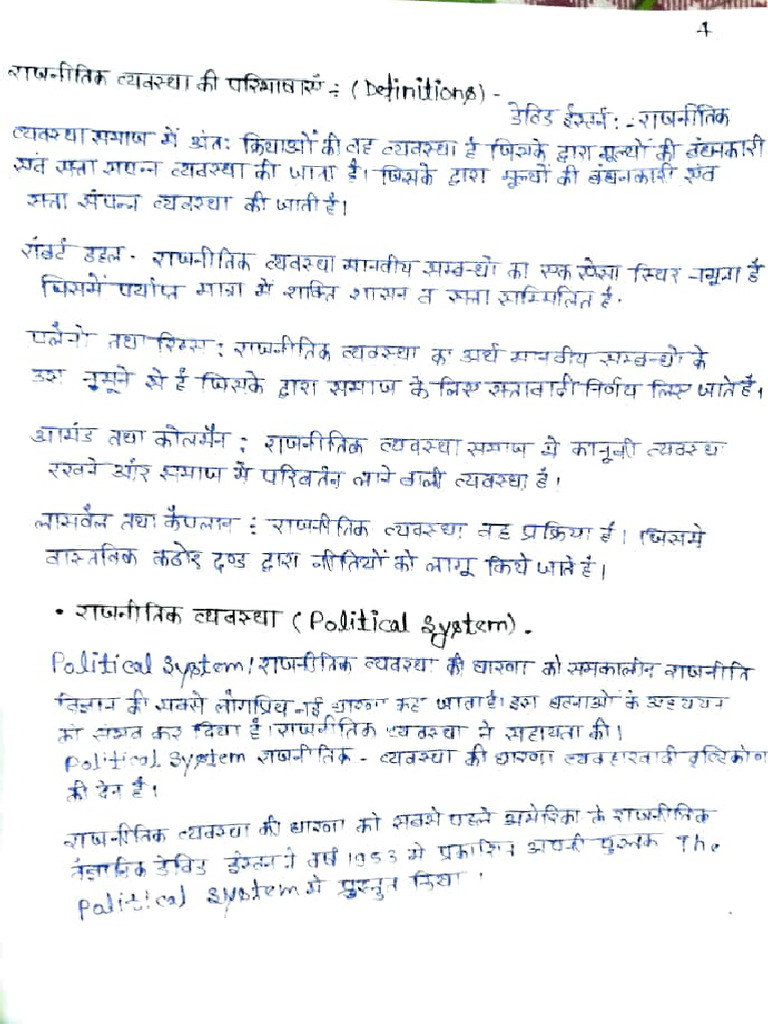 4
राजनीतिक व्यवस्था की परिभाषाएँ :- (Definitions) -
डेविड ईस्टर्न : - राजनीतिक
व्यवस्था समाज में अंतः क्रियाओं की वह व्यवस्था है जिसके द्वारा मूल्यों की बंधनकारी
एवं सत्ता सम्पन्न व्यवस्था की जाता है। जिसके द्वारा मूल्यों की बंधनकारी एवं
सत्ता संपन्न व्यवस्था की जाती है।
राबर्ट डहल - राजनीतिक व्यवस्था मानवीय सम्बन्धो का एक ऐसा स्थिर नमूना है
जिसमें पर्याप्त मात्रा में शक्ति शासन व सत्ता सम्मिलित है.
पलैनो तथा रिग्स : राजनीतिक व्यवस्था का अर्थ मानवीय सम्बन्धो के
उस नुमूने से है जिसके द्वारा समाज के लिए सत्तावादी निर्णय लिए जाते है।
आमंड तथा कोलमैन : राजनीतिक व्यवस्था समाज मे कानूनी व्यवस्था
रखने और समाज में परिवर्तन लाने वाली व्यवस्था है।
लासवैल तथा कैपलान : राजनीतिक व्यवस्था वह प्रक्रिया है। जिसमे
वास्तविक कठोर दण्ड द्वारा नीतियों को लागू किये जाते है।
• राजनीतिक व्यवस्था (Political System).
Political System/राजनीतिक व्यवस्था की धारणा को समकालीन राजनीति
विज्ञान की सबसे लोगप्रिय नई धारणा कहा जाता है। इस घटनाओं के अध्ययन
को संभव कर दिया है। राजनीतिक व्यवस्था ने सहायता की।
Political System राजनीतिक - व्यवस्था की धारणा व्यवहारवादी दृष्टिकोण
की देन है।
राजनीतिक व्यवस्था की धारणा को सबसे पहले अमेरिका के राजनीतिक
वैज्ञानिक डेविड ईस्टन ने वर्ष 1953 मे प्रकाशित अपनी पुस्तक The
Political System मे प्रस्तुत किया।